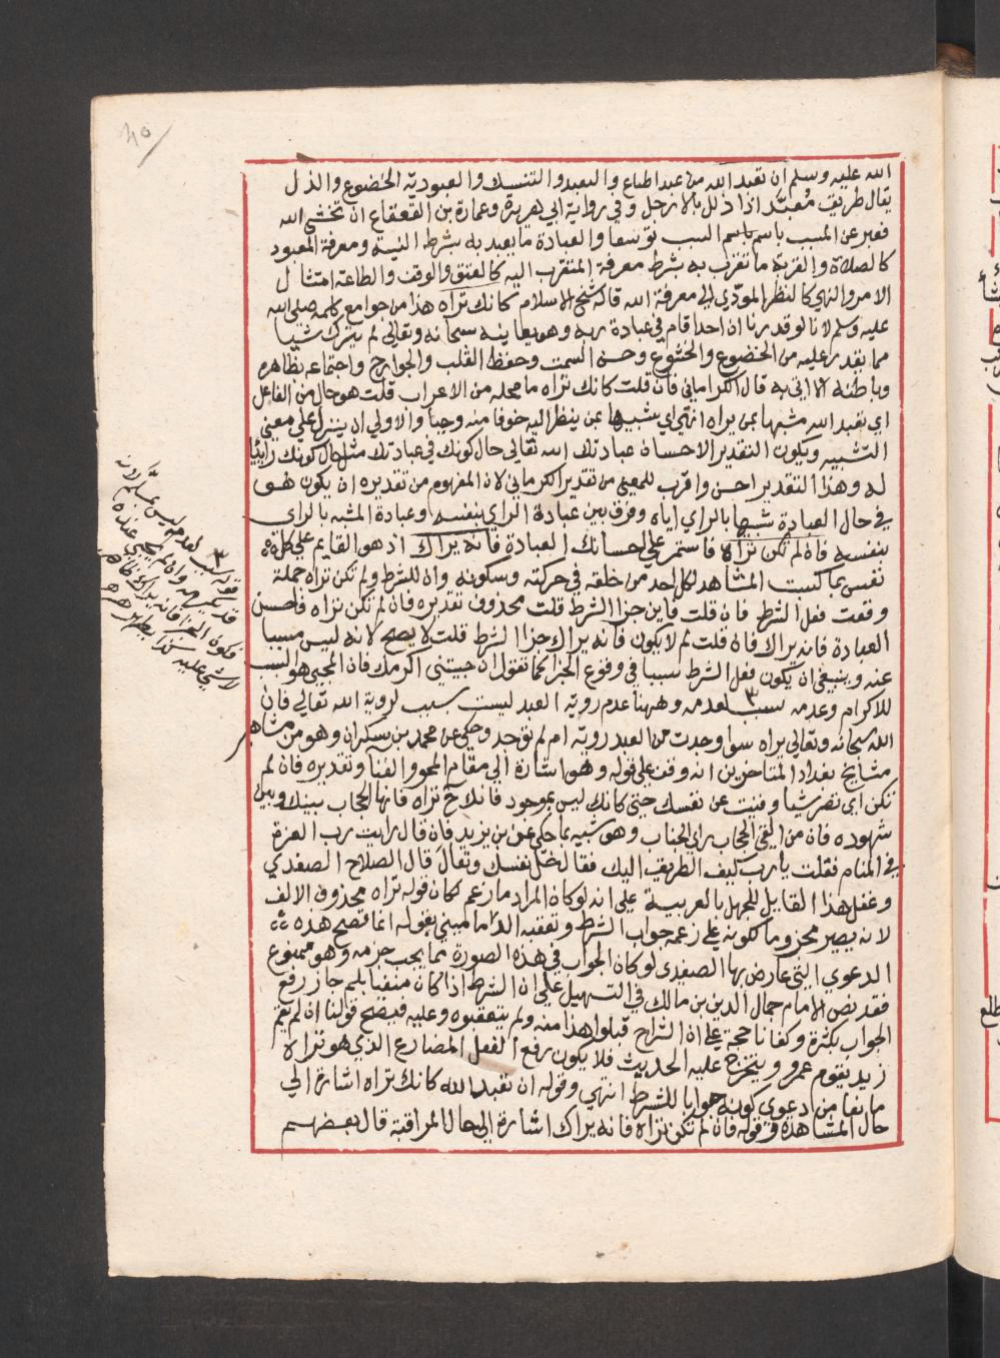 الله عليه وسلم ان تعبد الله من عبد اطاع والتعبد والتنسك والعبودية الخضوع والذل
يقال طريق معبد اذا ذلل بالارجل وفي رواية ابي هريرة وعمارة بن القعقاع ان تخشى الله
فعبر عن المسبب باسم السبب توسعا والعبادة ما يعبد به بشرط النية ومعرفة المعبود
كالصلاة والقربة ما تقرب به بشرط معرفة المتقرب اليه كالعتق والوقف والطاعة امتثال
الامر والنهي كالنظر المودي الي معرفة الله قاله شيخ الاسلام كانك تراه هذا من جوامع كلمه صلى الله
عليه وسلم لانا لو قدرنا ان احدا قام في عبادة ربه وهو يعاينه سبحانه وتعالى لم يترك شيا
مما يقدر عليه من الخضوع والخشوع وحسن السمت وحفظ القلب والجوارح واجتماعه بظاهره
وباطنه الا اتي به قال الكرماني فان قلت كانك تراه ما محله من الاعراب قلت هو حال من الفاعل
اي تعبد الله مشبها بمن يراه انتهي اي شبيها بمن ينظر اليه خوفا منه وحيا والاولي ان ينزل علي معني
التشبيه ويكون التقدير الاحسان عبادتك الله تعالي حال كونك في عبادتك مثل حال كونك رائيا
له وهذا التقدير احسن واقرب للمعني من تقدير الكرماني لان المفهوم من تقديره ان يكون هو
في حال العبادة شبيها بالراي اياه وفرق بين عبادة الراي بنفسه وعبادة المشبه بالراي
بنفسه فان لم تكن تراه فاستمر علي احسانك العبادة فانه يراك اذ هو القايم علي كل
نفس بما كسبت المشاهد لكل احد من خلقه في حركته وسكونه وان للشرط ولم تكن تراه جملة
وقعت فعل الشرط فان قلت فاين جزا الشرط قلت محذوف تقديره فان لم تكن تراه فاحسن
العبادة فانه يراك فان قلت لم لا يكون فانه يراك جزا الشرط قلت لا يصح لانه ليس مسببا
عنه وينبغي ان يكون فعل الشرط سببا في وقوع الجزا كما تقول ان جيتني اكرمك فان المجي هو السبب
للاكرام وعدمه سبب لعدمه وههنا عدم روية العبد ليست سبب لروية الله تعالي فان
الله سبحانه وتعالي يراه سوا وجدت من العبد روية ام لم توجد وحكي عن محمد بن سكران وهو من مشاهير
مشايخ بغداد المتاخرين انه وقف علي قوله وهو اشارة الي مقام المحو والفنا وتقديره فان لم
تكن اي تصر شيا وفنيت عن نفسك حتي كانك ليس بموجود فانك ح تراه فانها الحجاب بينك وبين
شهوده فان من القي الحجاب راي الجناب وهو شبيه بما حكي عن بن يزيد فان قال رايت رب العزة
في المنام فقلت يا رب كيف الطريق اليك فقال خل نفسك وتعال قال الصلاح الصفدي
وغفل هذا القايل للجهل بالعربية علي انه لو كان المراد ما زعم كان قوله تراه محذوف الالف
لانه يصير مجزوما لكونه علي زعمه جواب الشرط وتعقبه الدماميني بقوله انما تصح هذه
الدعوي التي عارض بها الصفدي لو كان الجواب في هذه الصورة مما يجب جزمه وهو ممنوع
فقد نص الامام جمال الدين بن مالك في التسهيل علي ان الشرط اذا كان منفيا بلم جاز رفع
الجواب بكثرة وكفانا حجة علي ان الشراح قبلوا هذا منه ولم يتعقبوه وعليه فيصح قولنا ان لم يقم
زيد يقوم عمرو ويتخرج عليه الحديث فلا يكون رفع الفعل المضارع الذي هو تراه
مانعا من دعوي كونه جوابا للشرط انتهي وقوله ان تعبد الله كانك تراه اشارة الي
حال المشاهدة وقوله فان لم تكن تراه فانه يراك اشارة الي حال المراقبة قال بعضهم
قوله سبب لعدمه ليس